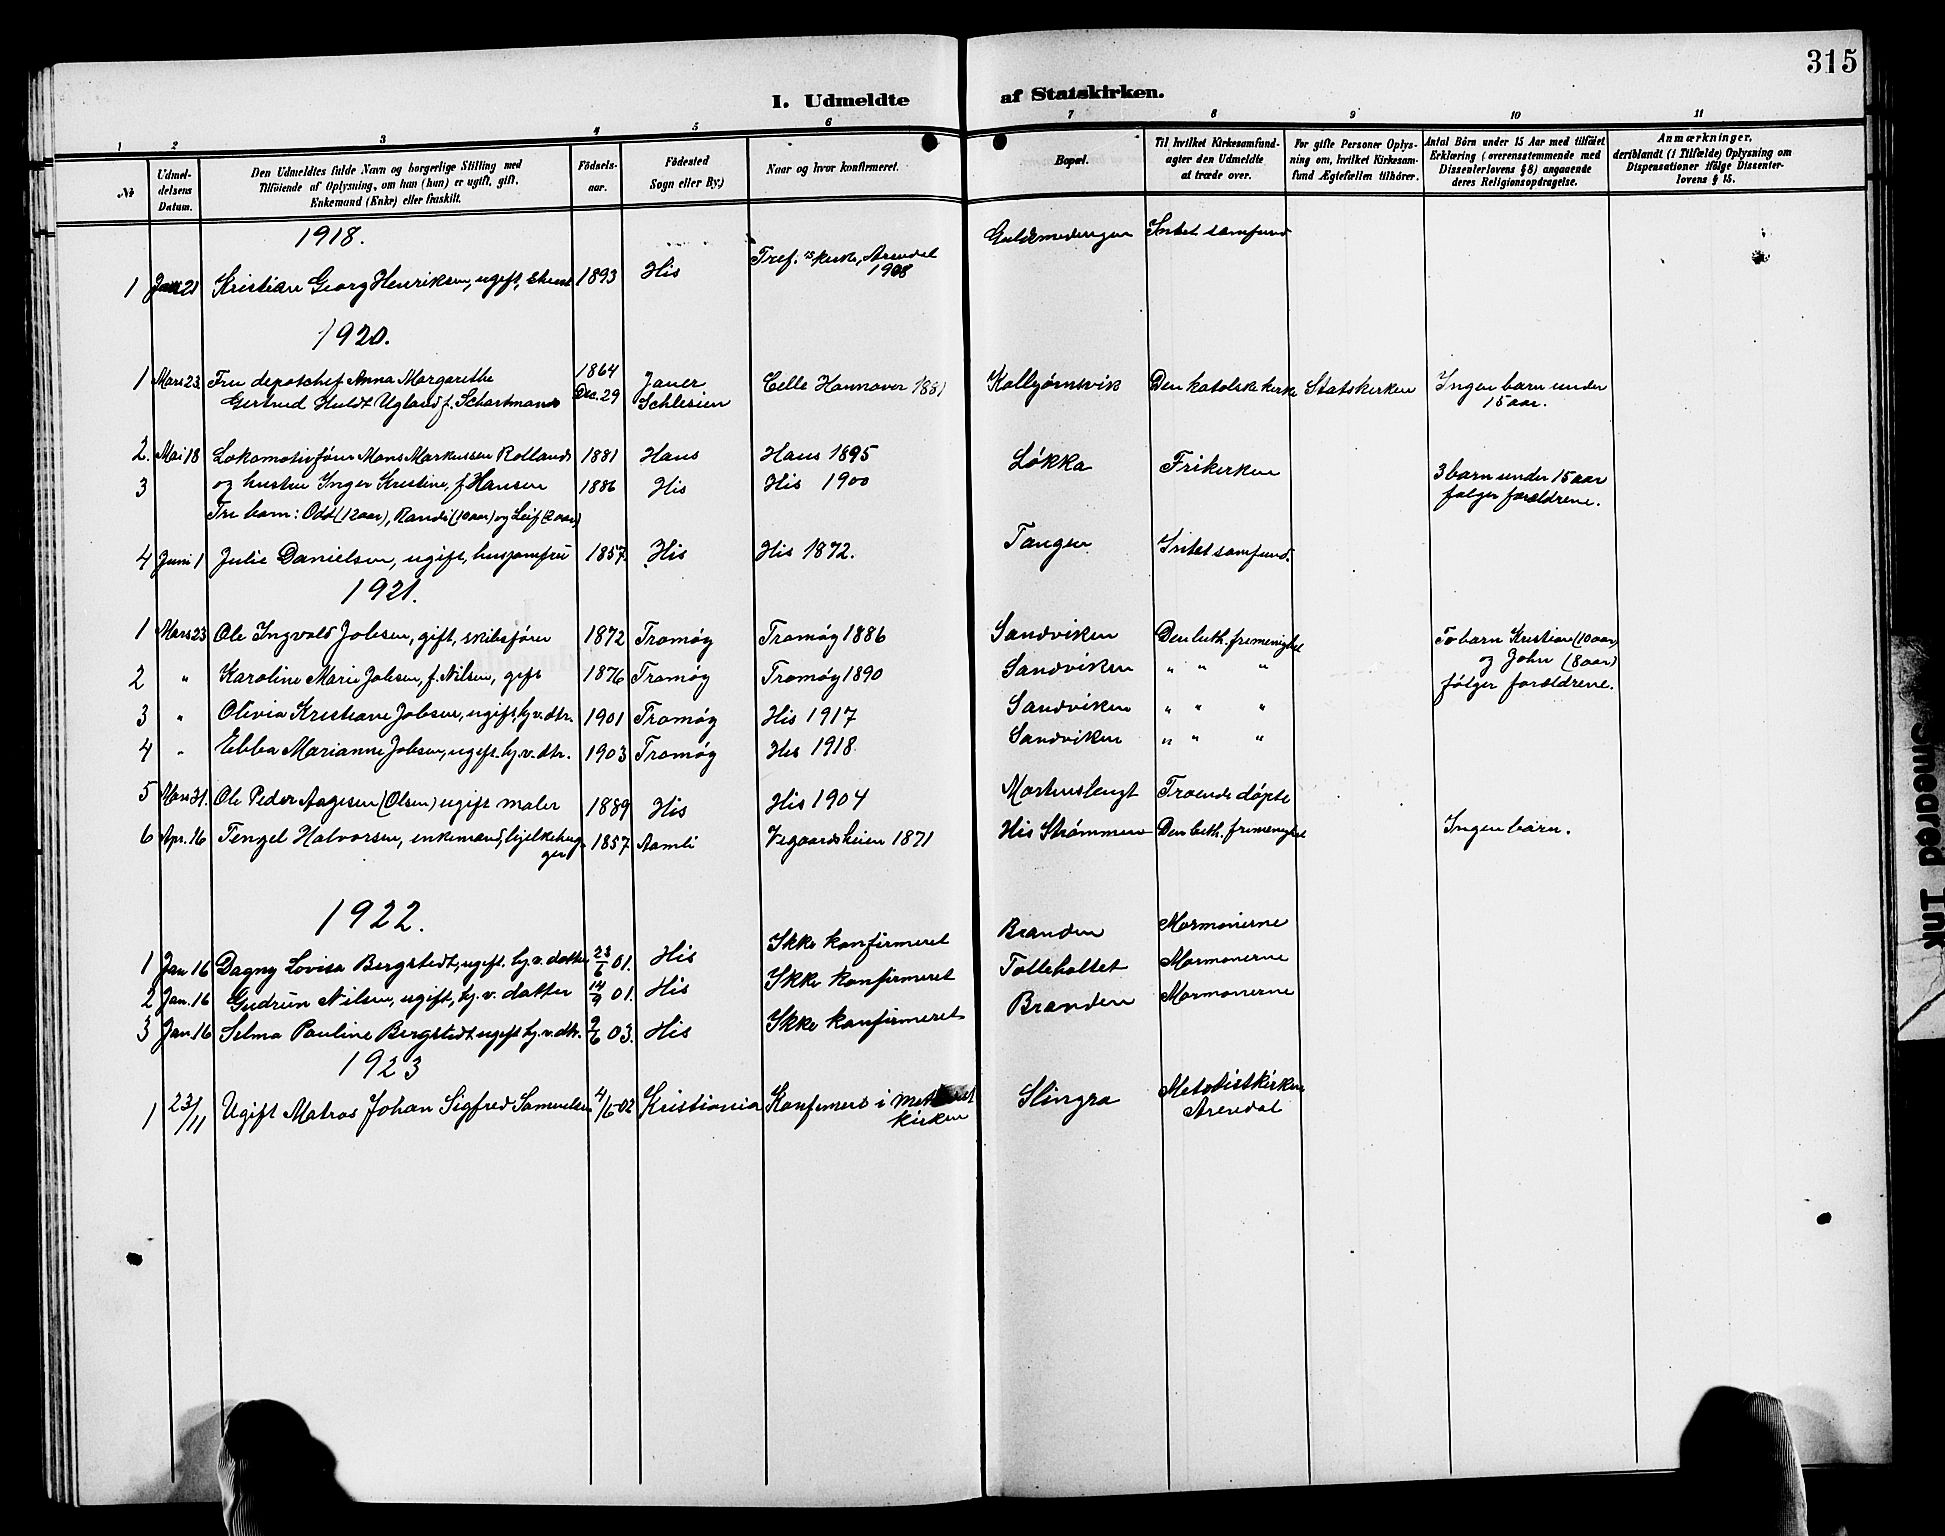 315
I. Udmeldte af Statskirken.
1 2 3 4 5 6 7 8 9 10 11
№
Udmel-
delsens
Datum.
Den Udmeldtes fulde Navn og borgerlige Stilling med
Tilföiende af Oplysning, om han (hun) er ugift, gift,
Enkemand (Enke) eller fraskilt.
Födsels-
aar.
Födested
Sogn eller By.)
Naar og hvor konfirmeret.
Bopæl.
Til hvilket Kirkesamfund-
agter den Udmeldte
at træde over.
For gifte Personer Oplys-
ning om, hvilket Kirkesam-
fund Ægtefællen tilhörer.
Antal Börn under 15 Aar med tilföiet
Erklæring (overensstemmende med
Dissenterlovens § 8) angaaende
deres Religionsopdragelse.
Anmærkninger,
deriblandt (i Tilfælde) Oplysning om
Dispensationer ifölge Dissenter-
lovens § 15.
1918.
1 Jan 21 Kristian Georg Henriksen, ugift, 1893 His Tref. kirke, Arendal Intet samfund
1908
1920.
1 Mars 23 Fru depotchef Anna Margarethe 1864 Jauer Celle Hannover 1881 Kolbjørnsvik Den katolske kirke Statskirken Ingen barn under
Gertrud Huldt Ugland f. Dec. 29 Schlesien 15 aar.
2. Mai 18 Lokomotivfører Mons Markussen Rolland 1881 Haus Haus 1895 Løkka Frikirken 3 barn under 15 aar
3 og hustru Inger Kristine, f. Hansen 1886 His His 1900 følger forældrene.
Tre barn: Odd (12 aar), Randi (10 aar) og Leif (2 aar)
4 Juni 1 Julie Danielsen, ugift, husjomfru 1857. His His 1872. Tangen Intet samfund.
1921.
1 Mars 23 Ole Ingvald Jobsen, gift, skibsfører 1872 Tromøy Tromøy 1886 Sandviken Den luth. frimenighet To barn Kristian (10 aar)
og John (8 aar)
2 " Karoline Marie Jobsen, f. Nilsen, gift 1876 Tromøy Tromøy 1890 Sandviken " " " følger forældrene.
3 " Olivia Kristiane Jobsen, ugift, hj.v. dtr. 1901 Tromøy His 1917 Sandviken " " "
4 " Ebba Marianne Jobsen, ugift hj.v. dtr. 1903 Tromøy His 1918 Sandviken " " "
5 Mars 31. Ole Peder Aagesen (Olsen) ugift maler 1889 His His 1904 Troende døpte
6 Apr. 16 Tengel Halvorsen, enkemand, bjelkehug- 1857 Aamli Vegaardsheien 1871 His Strømmen Den luth. frimenighet Ingen barn.
ger
1922.
1 Jan 16 Dagny Lovisa Bergstedt, ugift. hj.v. datter 23/6 01. His Ikke konfirmeret Branden Mormonerne
2 Jan. 16 Gudrun Nilsen, ugift, hj.v. datter 14/9 01. His Ikke konfirmeret Tolleholtet Mormonerne
3 Jan 16 Selma Pauline Bergstedt ugift hj.v. dtr. 9/6 03. His Ikke konfirmeret Branden Mormonerne
1923
1 23/11 Ugift Matros Johan Sigfred Samuelsen 4/5 02 Kristiania Konfirmert i Metodist Slingra Metodistkirken
kirken Arendal
Smeared Ink